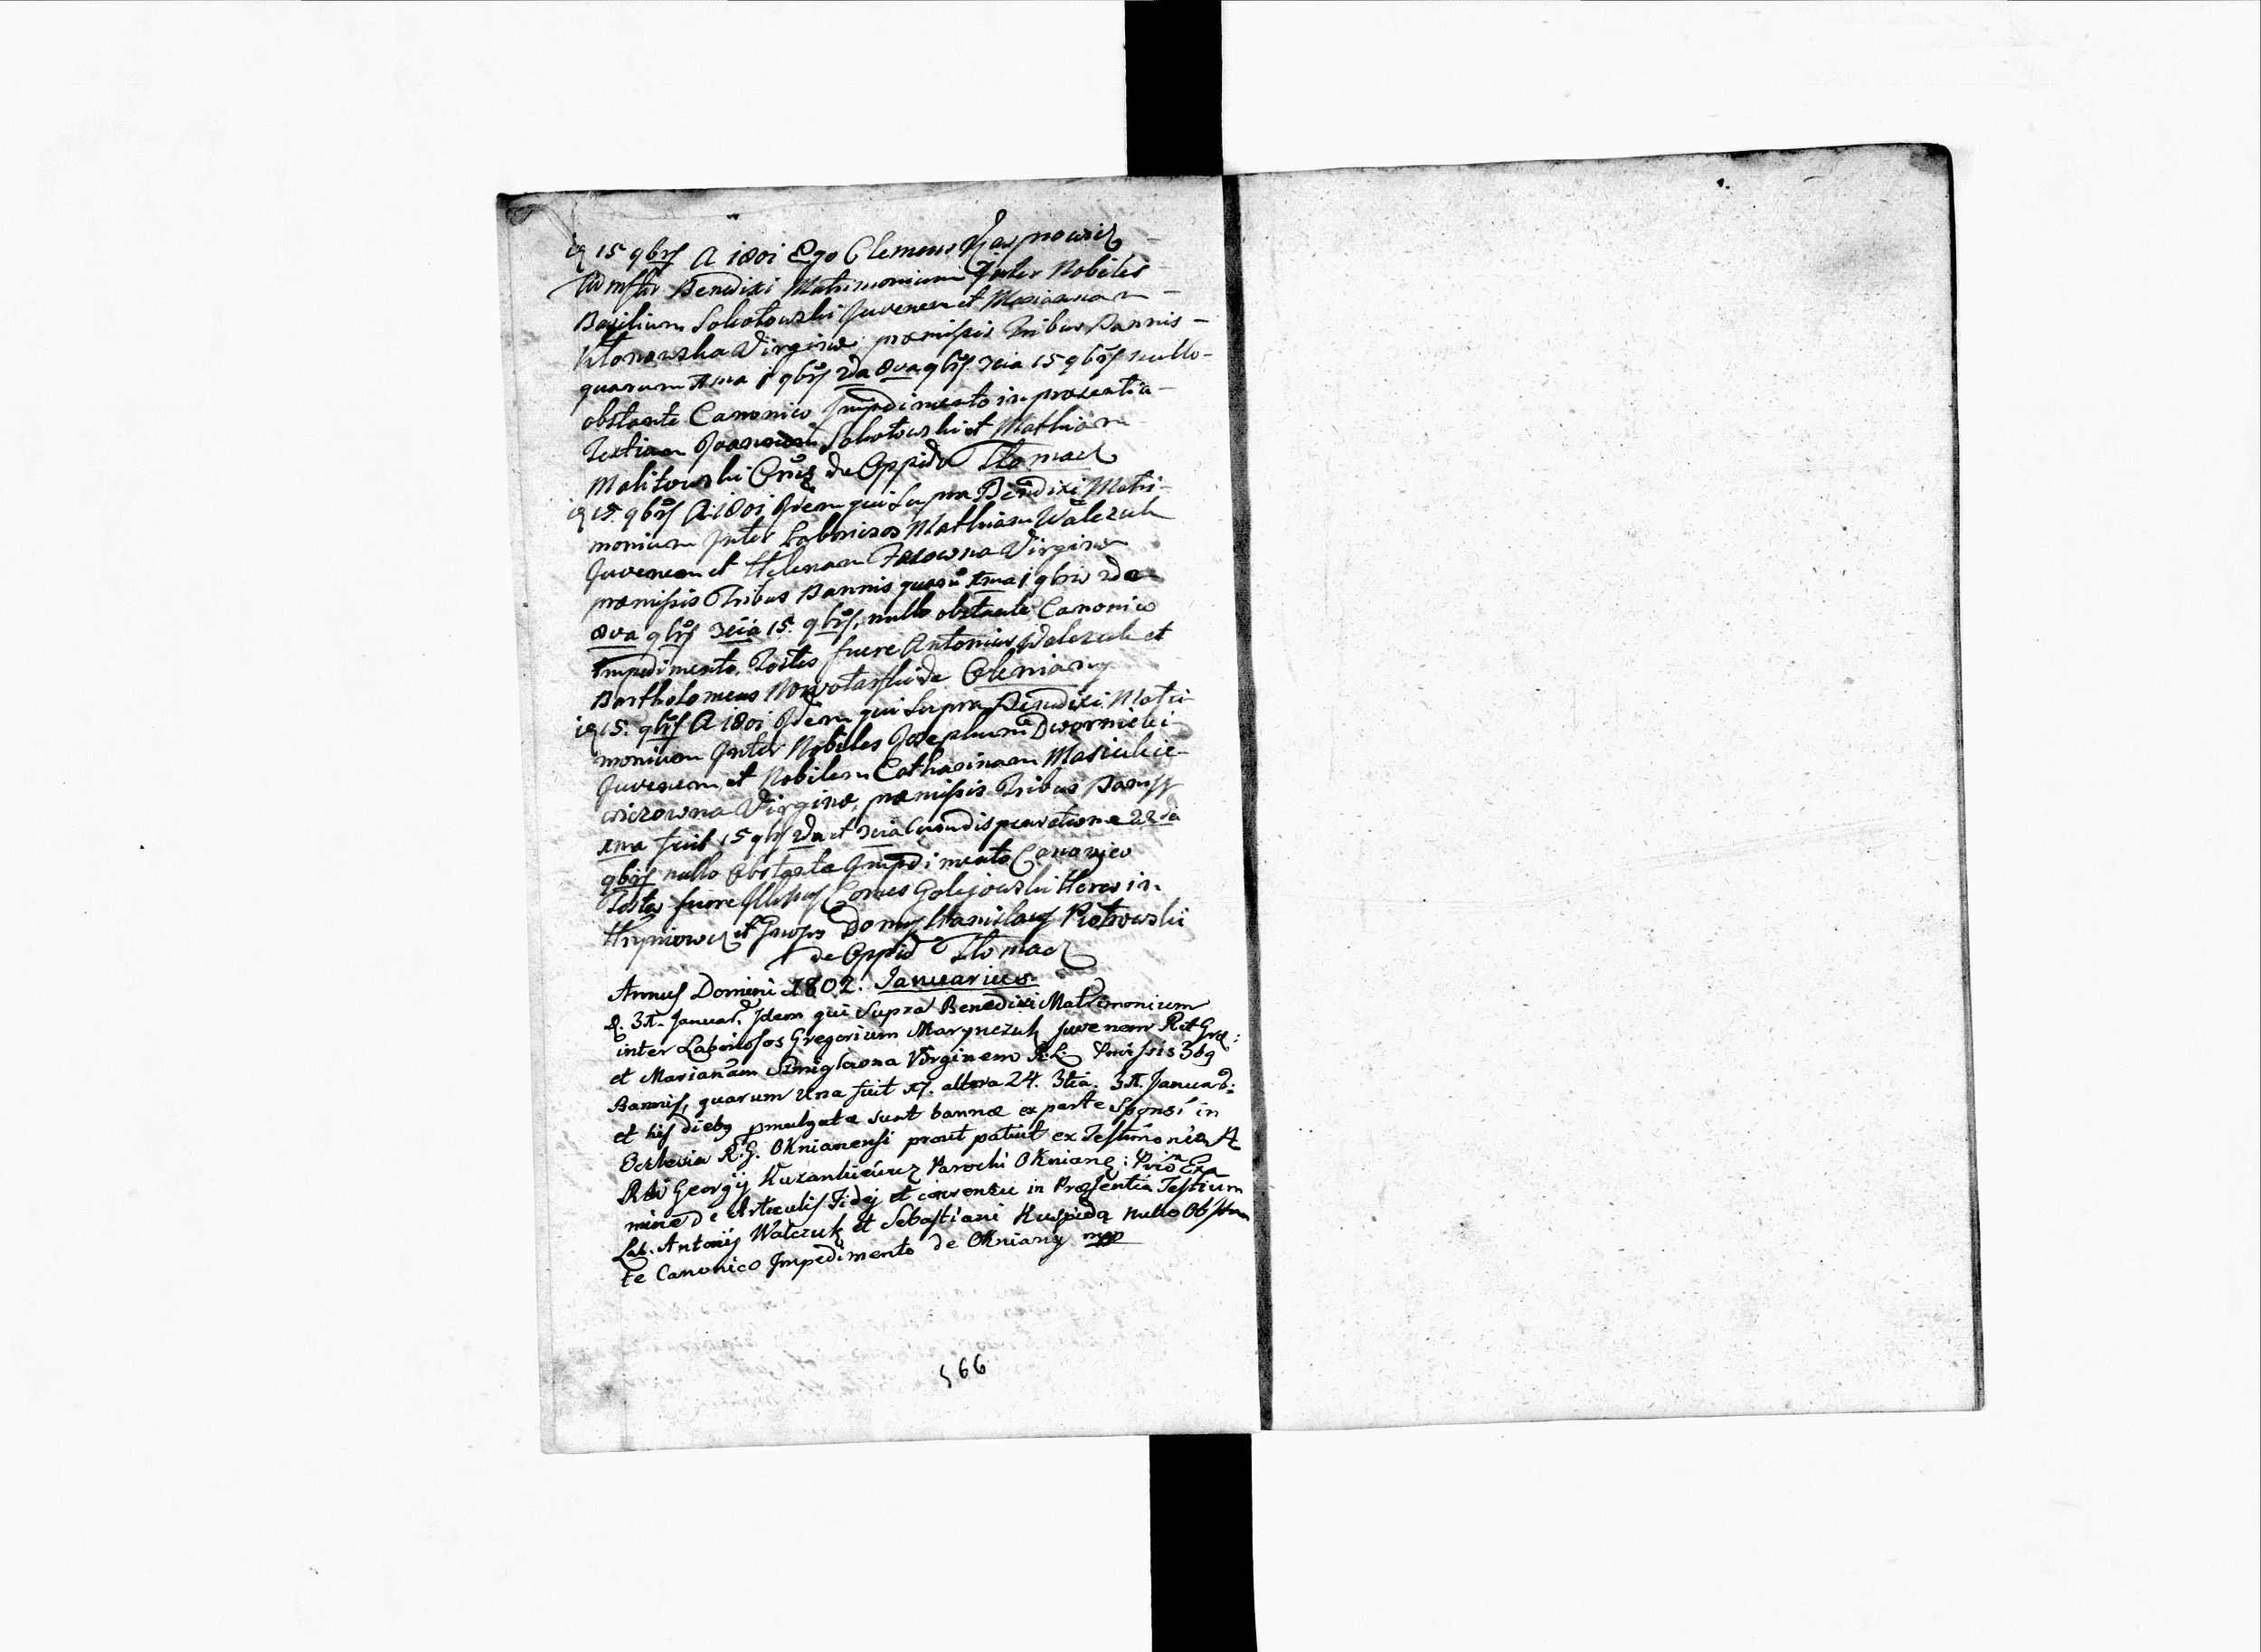 15 9brs A 1801 Ego Clemens
Benedixi Matrimonium Inter Nobiles
Basilium Sokołowski Juvenem et Mariannam
Virgine, præmissis Tribus Bannis
quarum 1ma 1 9brs 2da 8va 9brs 3cia 15 9brs nullo
obstante Canonico Impedimento in præsentia
Testium Joannem Sokołowski et Mathiam
Malitowski de Oppido Tłomacz
15 9brs A 1801 Idem qui Supra Benedixi Matri-
monium Inter Laboriosos Mathiam Walczuk
Juvenem et Helenam Virgine
præmissis Tribus Bannis quarū 1ma 1 9bris 2da
8va 9brs 3cia 15. 9brs, nullo obstante Canonico
Impedimento, Testes fuere Antonius Walczuk et
Bartholomeus Nowotarski de Okniany
15. 9brs A 1801 Idem qui Supra Benedixi Matri-
monium Inter Nobiles Josephum Dwornicki
Juvenem et Nobilem Catharinam Masiukie-
wiczowna Virgine, præmissis Tribus Bannis
1ma fuit 15 9brs 2da et 3cia cum dispensatione 22da
9brs nullo Obstante Impedimento Canonico
Testes fuere Comes Golejowski Heres in
et Domus Stanislaus Piotrowski
de Oppid Tłomacz
Annus Domini 1802. Januarius
D. 31. Januar. Idem qui Supra Benedixi Matrimonium
inter Laboriosos Gregorium Marynczuk Juvenem Rit Græ:
et Mariannam Virginem R: L: Præmissis 3bg
Bannis, quarum Una fuit 17. altera 24. 3tia. 31. Januar:
et his diebg pmulgatæ sunt bannæ ex parte Sponsi in
Ecclesia R. G. Oknianensi prout patuit ex Testimonio A
Rdi Georgij Parochi Okniane: Exa
mine de Articulis Fidej et consensu in Præsentia Testium
Lab. Antonij Walczuk et Sebastiani nullo Obstan
te Canonico Impedimento de Okniany mpp
566